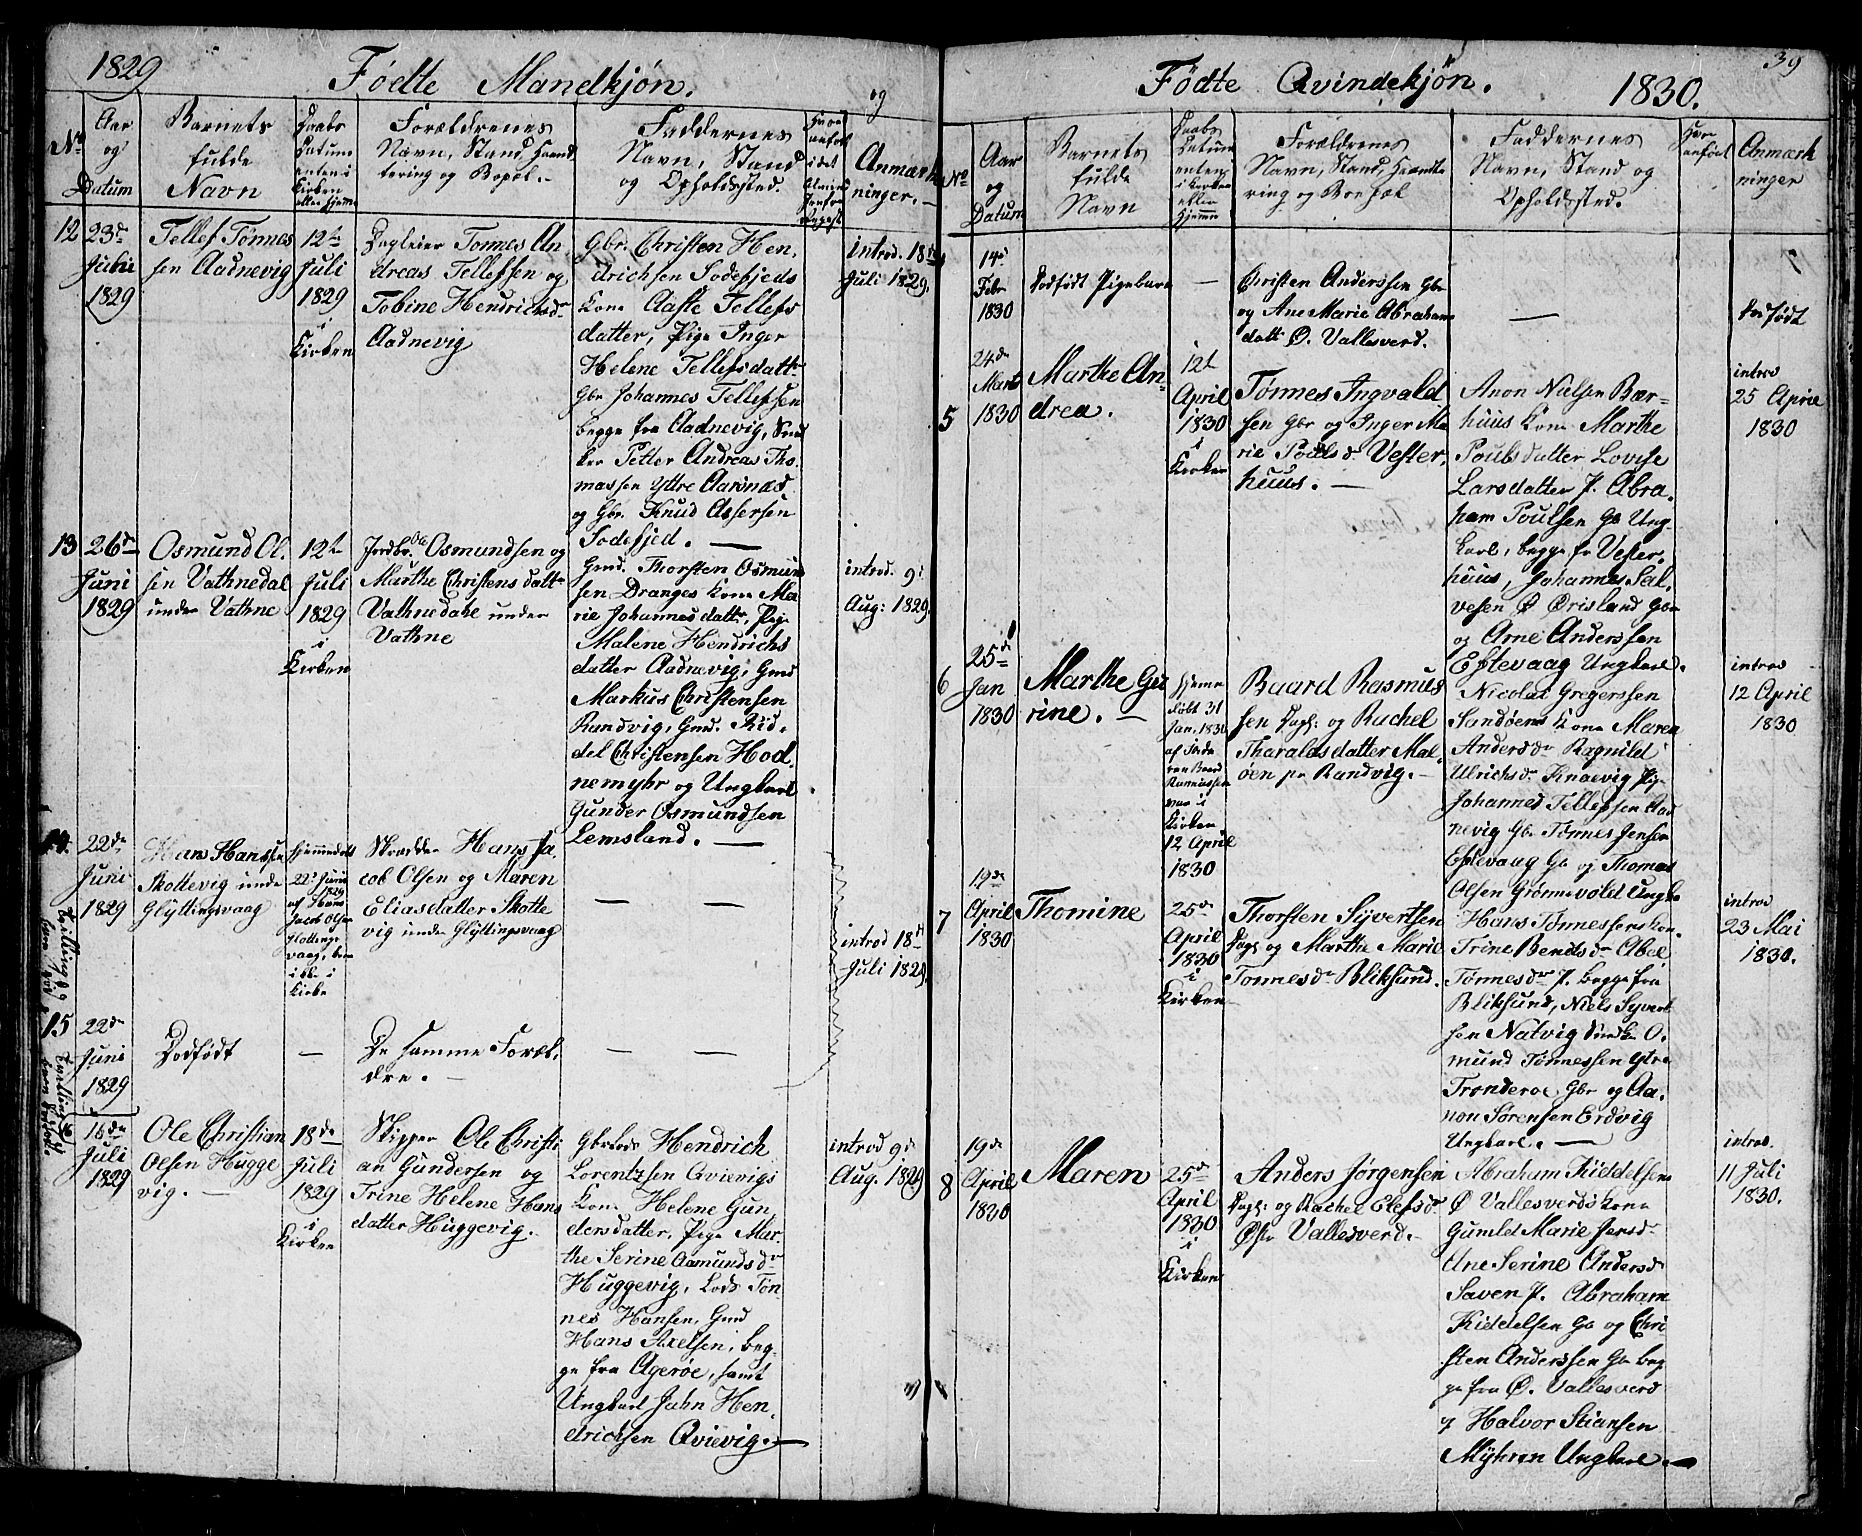 1829
Fødte Mandkjøn.
No
Aar
og
Datum
Barnets
fulde
Navn
Daabs
Datum
enten i
Kirken
eller Hjemme
Forældrenes
Navn, Stand Haand
tering og Bopæl.
Faddernes
Navn, Stand
og Opholdssted.
Anmærk
ninger.
12
23de
Junii
1829
Tellef Tønnes
sen Aadnevig
12te
Juli
1829
i
Kirken
Dagleier Tønnes An
dreas Tellefsen og
Tobine Hendrichsdr
Aadnevig
Gbr. Christen Hen,
drichsen Sodefjeds
Kone Aaste Tellefs
datter, Pige Inger
Helene Tellefsdattr
Gbr Johannes Tellefsen
begge fra Aadnevig, Sned
ker Petter Andreas Tho,
massen Yttre Aarsnæs
og Gbr. Knud Assersen
Sodefjed.
introd. 18de
Juli 1829.
13
26de
Juni
1829
Osmund Ol.
sen Vathnedal
under Vathne
12te
Juli
1829
i
Kirken
Jordbr. Ole Osmundsen og
Marthe Christens dattr
Vathnedale under
Vathne
Gmd. Thorsten Osmun
sen Dranges Kone Ma
rie Johannesdattr, Pige
Malene Hendrichs
datter Aadnevig, Gmd
Markus Christensen
Randvig, Gmd. Kid,
del Christensen Hod,
nemyhr og Ungkarl
Gunder Osmundsen
Lemsland.
introd. 9de
Aug: 1829.
22de
Juni
1829
Hans Hanssen
Skottevig unde
Glyttingsvaag
Hjemmedøbt
22de Juni
1829
af Hans
Jacob Olsen
Glottings
vaag, kom
ikke i
Kirke
Skrædder Hans Ja,
cob Olsen og Maren
Eliasdatter Skotte
vig under Glyttingsvaag
introd 18de
Juli 1829.
15
22de
Juni
1829
Dødfødt
De samme Foræl,
dre.
16de
Juli
1829
Ole Christian
Olsen Hugge
vig.
18de
Juli
1829
i
Kirken
Skipper Ole Christi
an Gundersen og
Trine Helene Hans
datter Huggevig.
Hendrich
Lorentzsen Qvievigs
Kone Helene Gun
dersdatter, Pige Mar
the Serine Osmundsdr
Huggevig, Lods Tøn
nes Hansen, Gmd
Hans Axelsen, beg,
ge fra Agerøe, samt
Ungkarl Jahn Hen,
drichsen Qvievig.
introd 9de
Aug. 1829
39
Fødte Qvindekjøn.
1830.
No
Aar
og
Datum
Barnets
fulde
Navn
Daabs
Datum
enten
i Kirken
eller
Hjemme
Forældrenes
Navn, Stand, Haandte
ring og Bopæl
Faddernes
Navn, Stand og
Opholdssted.
Hvor
anført
Anmærk
ninger
14de
Febr
1830
Dødfødt Pigebarn
Christen Anderssen Gbr
og Ane Marie Abraham
datt Ø. Vallesverd.
Dødfødt
5
24de
Marts
1830
Marthe An,
drea.
12te
April
1830
i
Kirken
Tønnes Ingvald
sen Gbr og Inger Ma
rie Poulsdr Vester,
huus.
Anon Nielsen Vær=
huus Kone Marthe
Poulsdatter Lovise
Larsdatter P. Abra,
ham Poulsen Gb Ung-
karl, begge fr Vester,
huus, Johannes Sal,
vesen Ø Ørisland Gbr
og Arne Anderssen
Eftevaag Ungkarl.
introd
25 April
1830
6
25de
Jan
1830
Marthe Ge
rine.
hjeme
døbt 31
Jan. 1830
af Fade
ren Baard
Rasmussen
var i
Kirken
12 April
1830
Baard Rasmus
sen Dagl: og Rachel
Tharaldsdatter Mal,
øen pr Randvig.
Nicolai Gregerssen
Sandøens Kone Maren
Andersdr Ragnild
Ulrichsdr Knævig Pig
Johannes Tellefsen Aad
nevig Gbr Tønnes Jensen
Eftevaag Gb og Thomas
Olsen Grønnevold Ungka
introd
12 April
1830
7
19de
April
1830
Thomine
25de
April
1830
i
Kirken
Thorsten Syvertsen
Dagl og Marthe Marie
Tønnesdr Bliksund.
Hans Tønnessens Kon,
Trine Bentsdr Abel
Tønnesdr P. begge fra
Bliksund, Niels Syvert
sen Natvig Snedkr O,
mund Tønnessen Ytre
Tronderøe Gbr og Aa,
non Sørensen Erdvig
Ungkarl.
introd
23 Mai
1830.
8
19de
April
1830
Maren
25de
April
1830
i
Kirken
Anders Jørgensen
Dagl: og Rachel Elefsdr
Østr Vallesverd.
Abraham Kiddelsens
Ø Vallesverds Kone
Gumlei Marie Jensdr
Ane Serine Andersdr
Saven P. Abraham
Kiddelsen Gb og Chri
sten Anderssen Gb beg
ge fra Ø. Vallesverd
og Halvor Stiansen
Myhren Ungkarl.
introd.
11 Juli
1830.